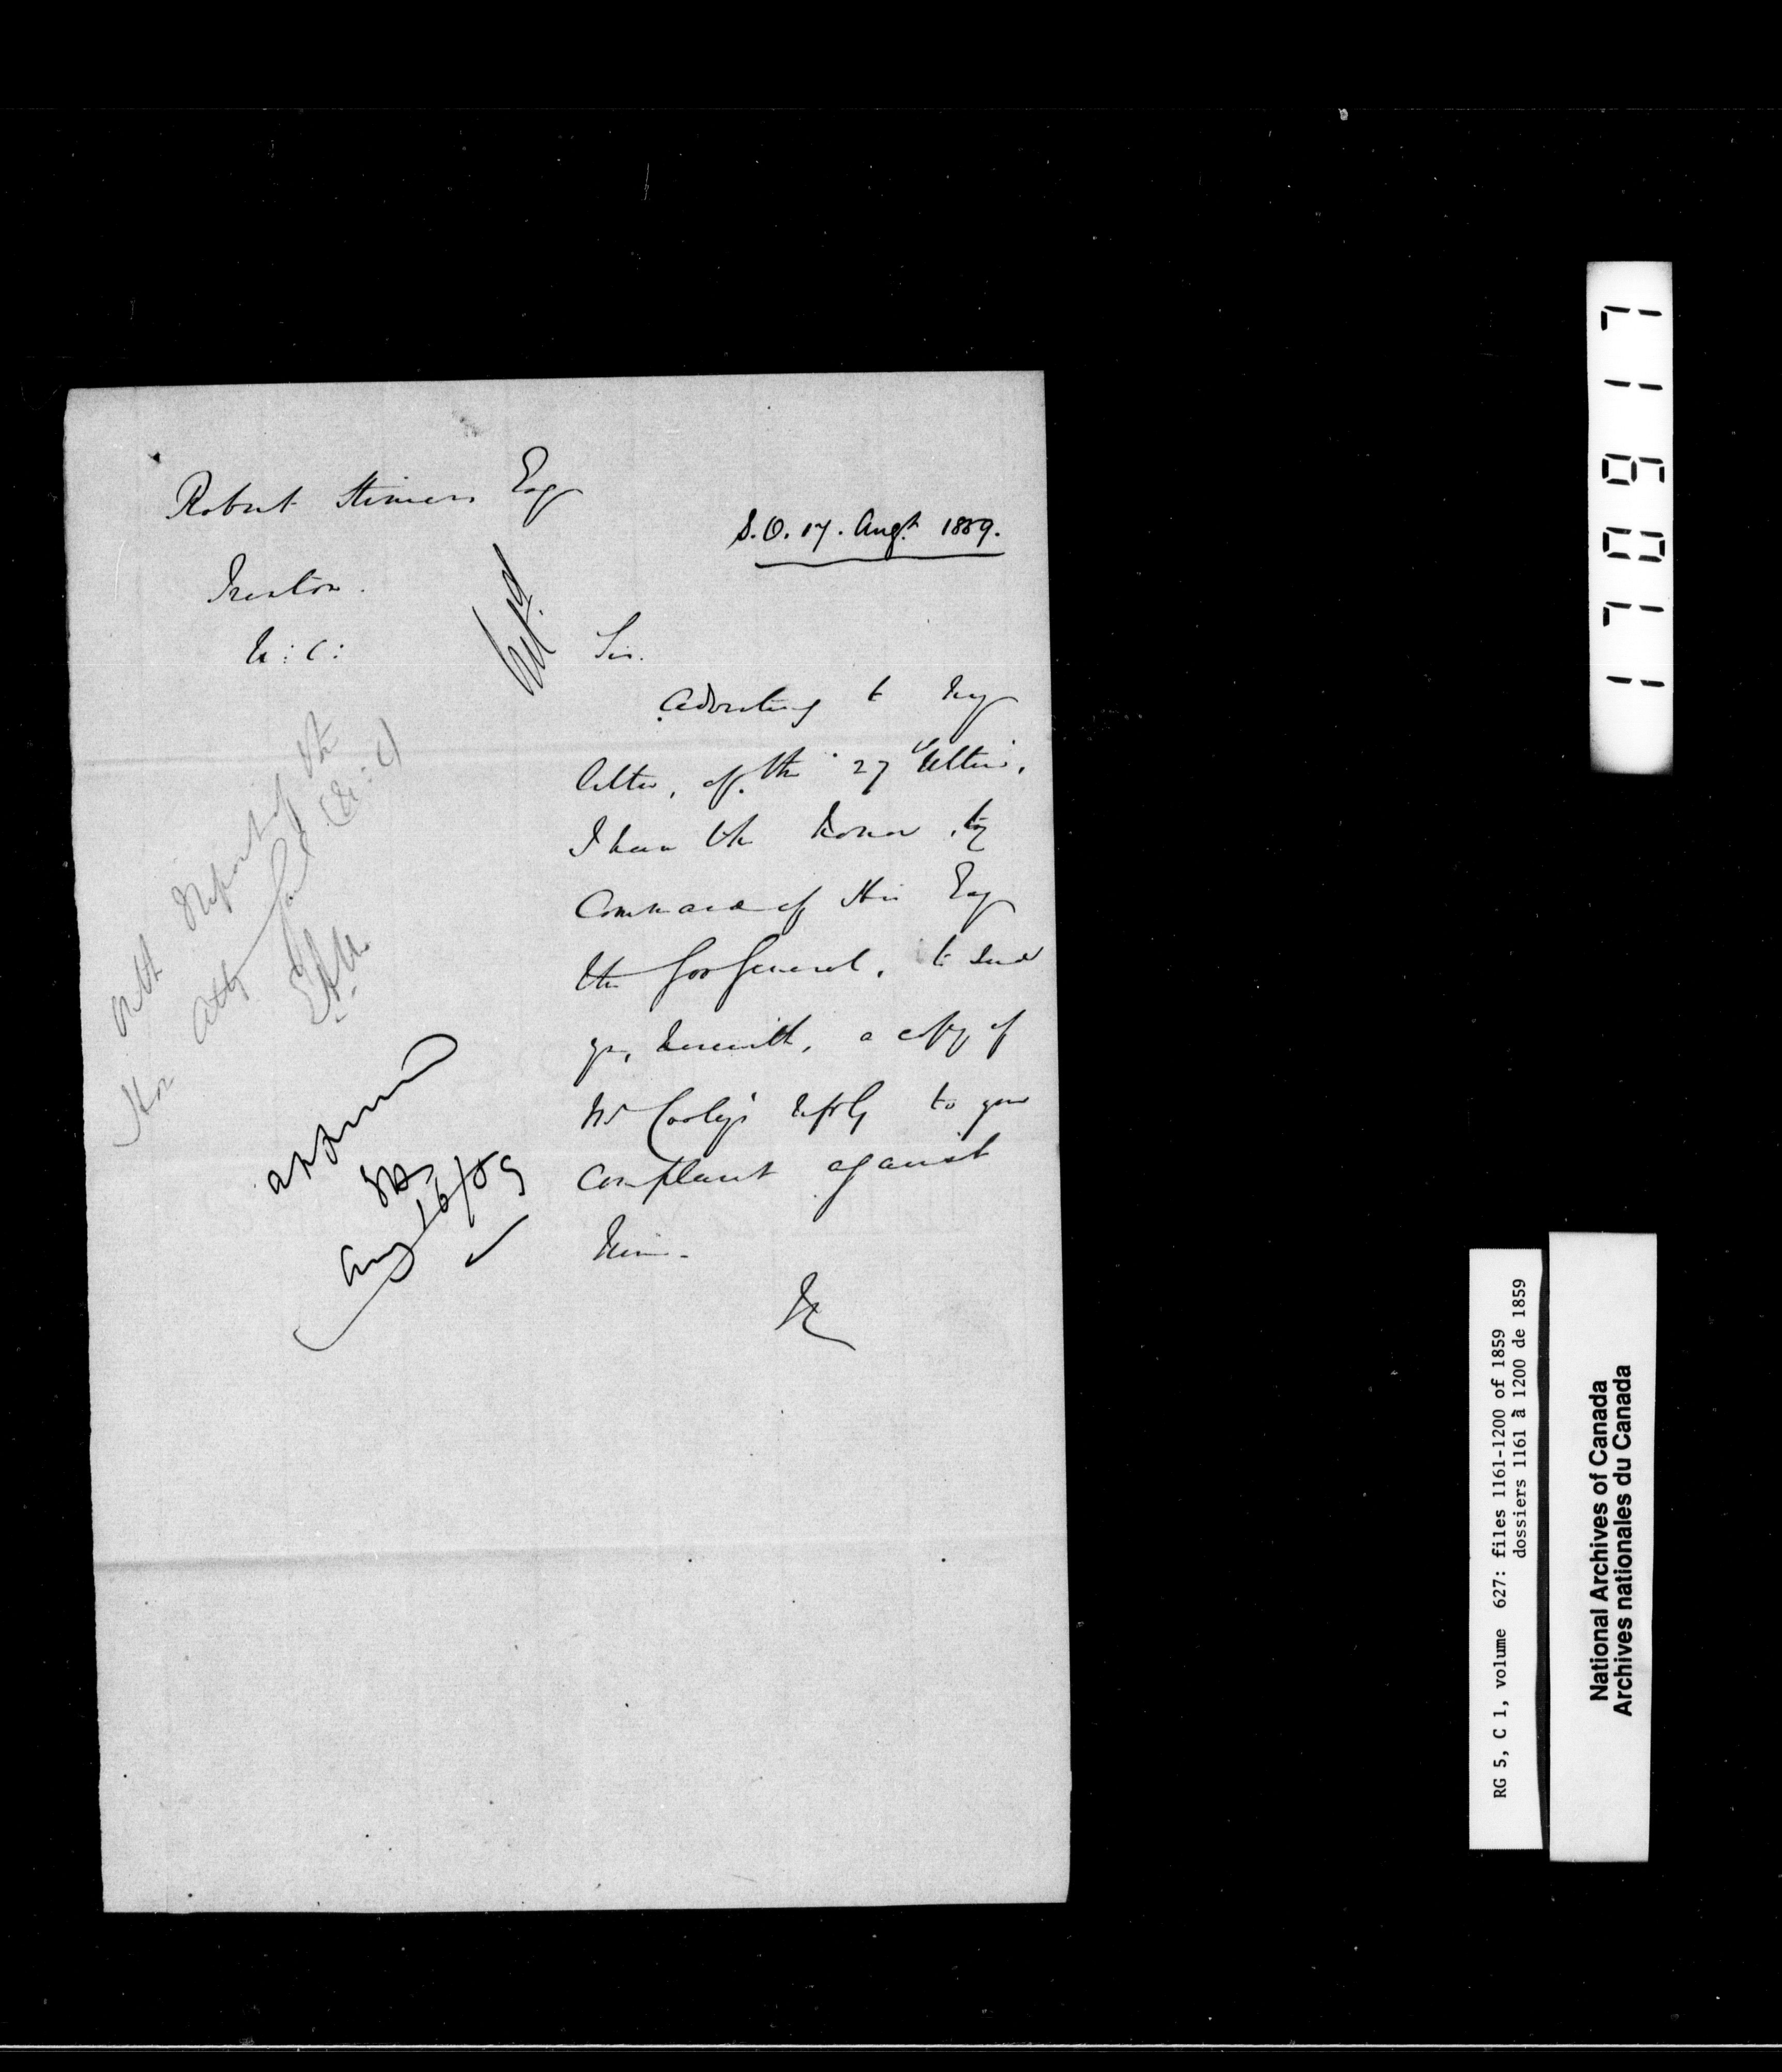 Robert Stimers Esq
S.O. 17. Augt. 1859.
Trenton.
U: C:
Sir.
Adverting to my
letter, of the 27th Ultimo,
I have the honor, by
Command of His Exy
the Gov General, to send
you, herewith, a copy of
Mr Cooley's reply to your
complaint against
him.
&c
With Report of the
Hon Atty Genl (U: C)
Approved
Aug 16/59
1170917
RG 5, C 1, volume 627: files 1161-1200 of 1859
dossiers 1161 à 1200 de 1859
National Archives of Canada
Archives nationales du Canada